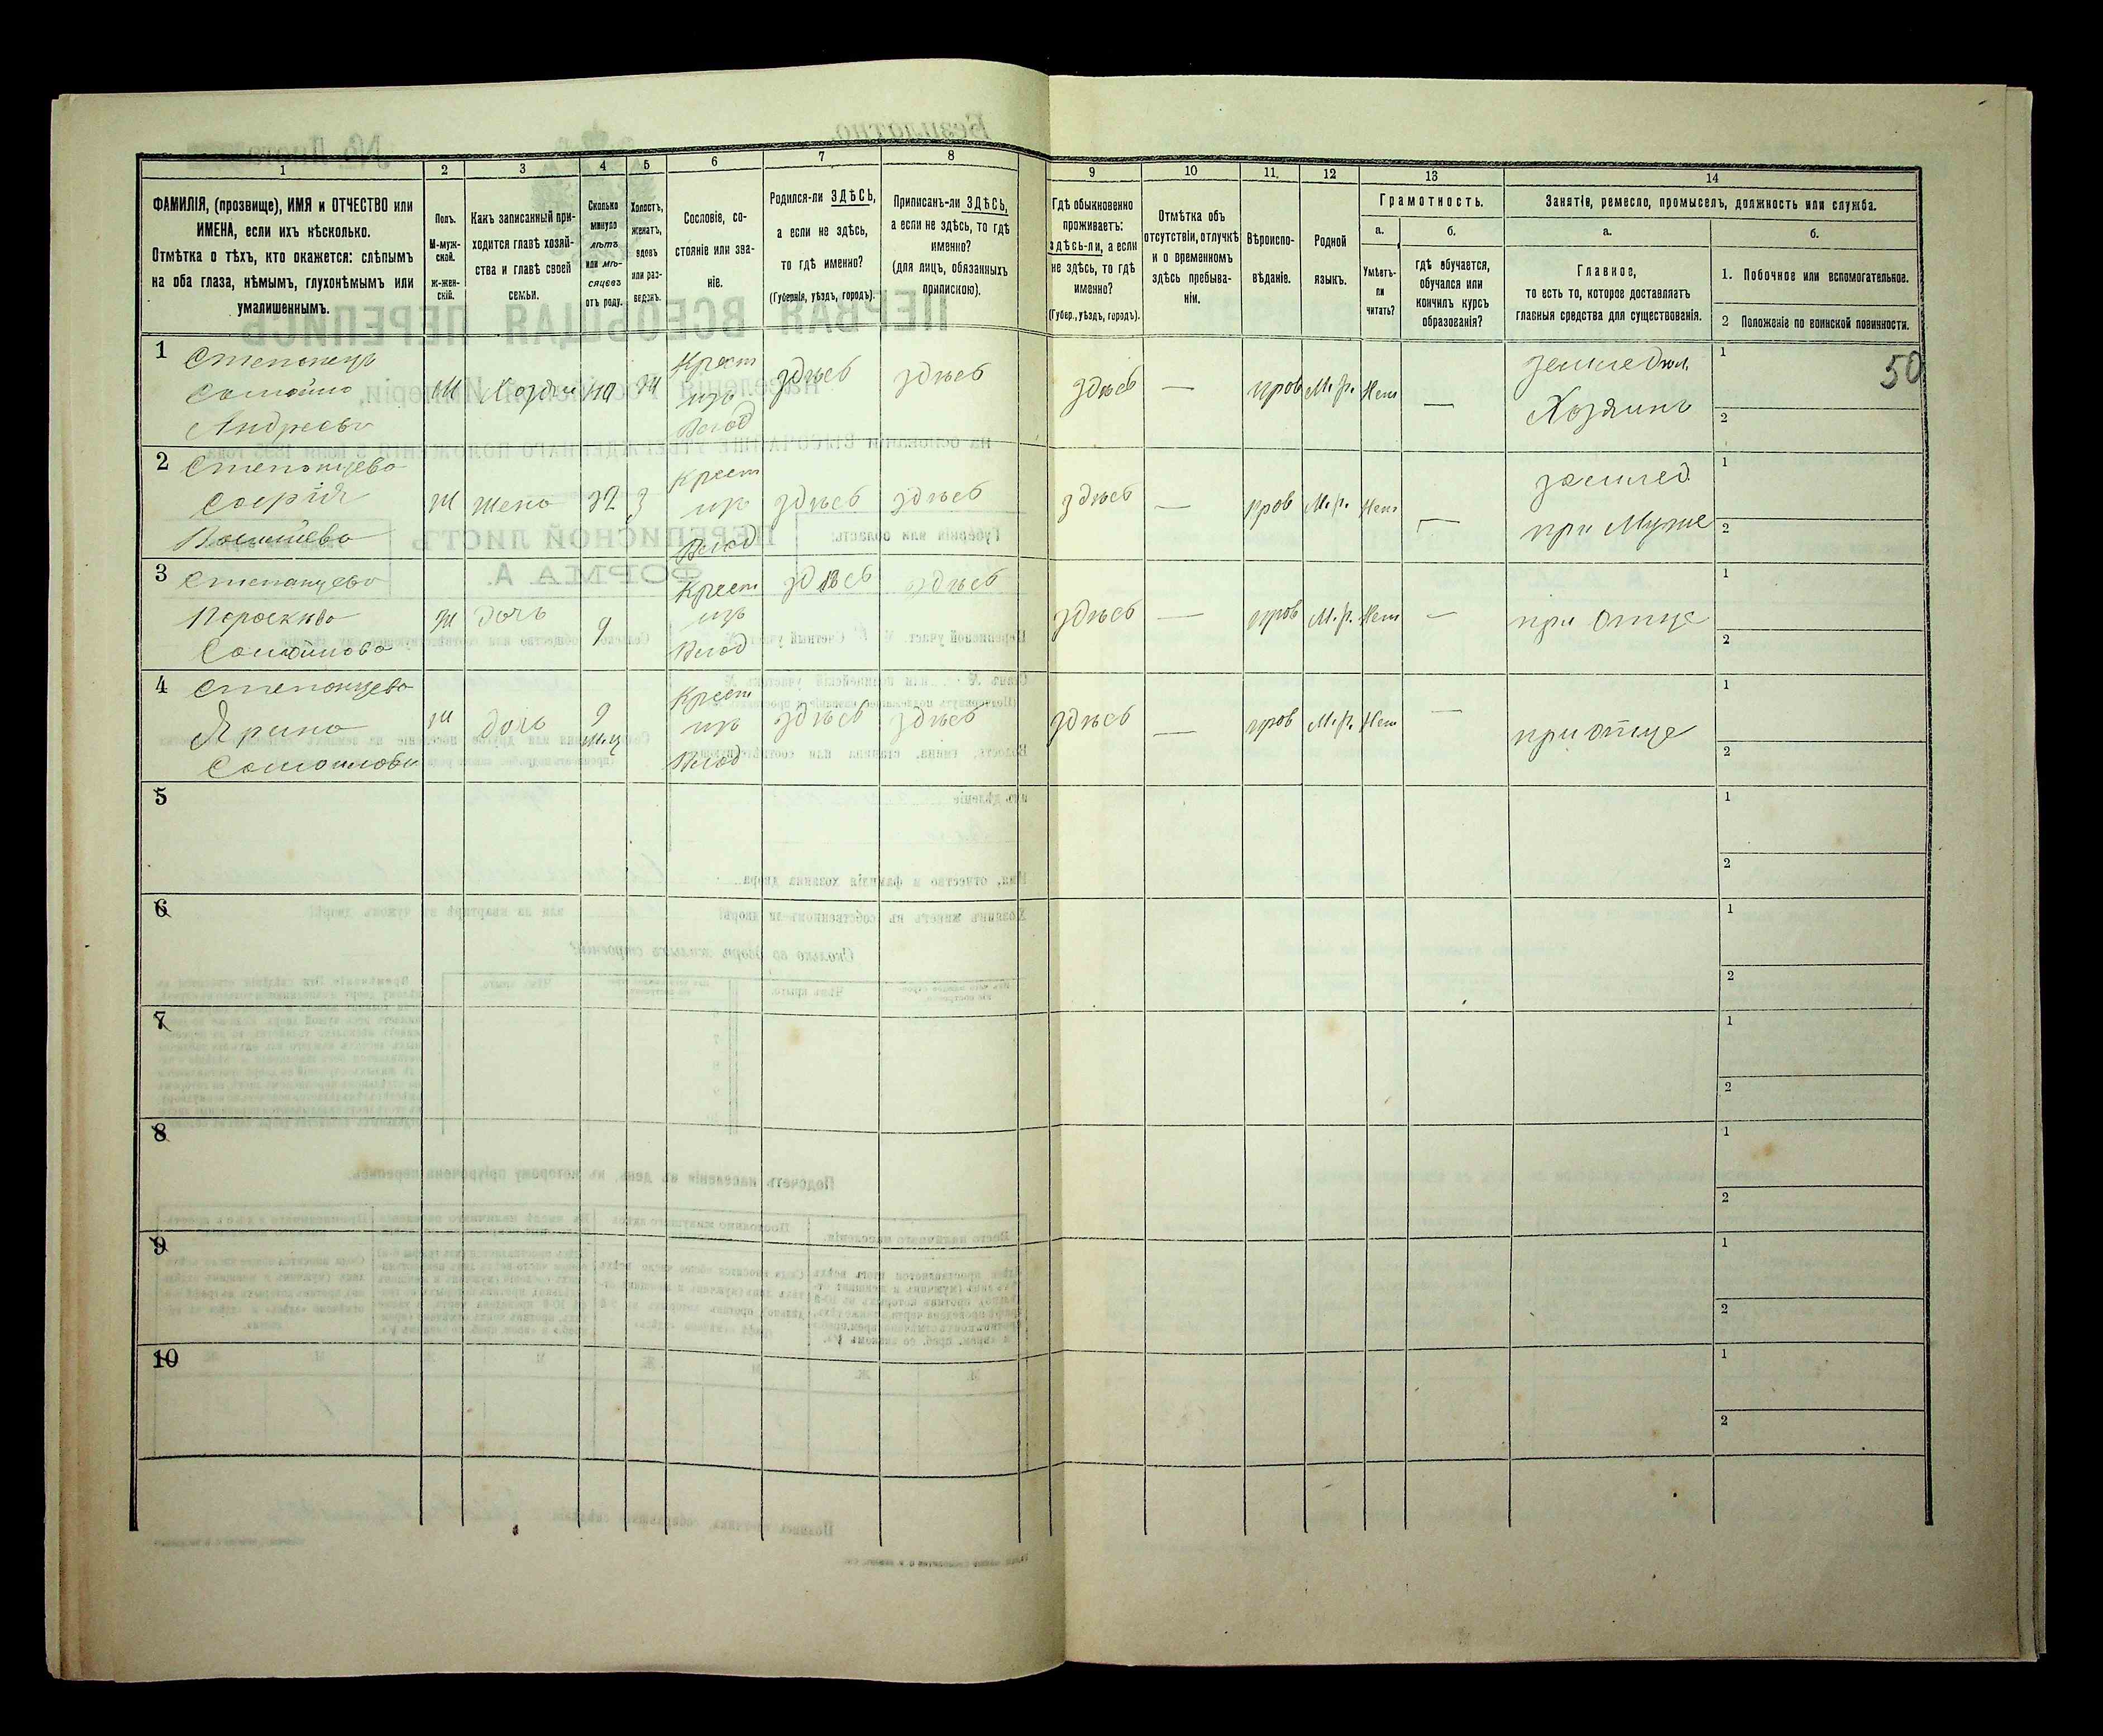 1
2
3
4
5
6
7
8
9
10
11.
12
13
14
ФАМИЛІЯ, (прозвище), ИМЯ и ОТЧЕСТВО или
ИМЕНА, если ихъ нѣсколько.
Отмѣтка о тѣхъ, кто окажется: слѣпымъ
на оба глаза, нѣмымъ, глухонѣмымъ или
умалишеннымъ.
Полъ.
М-муж-
ской.
ж-жен-
скій.
Какъ записанный при-
ходится главѣ хозяй-
ства и главѣ своей
семьи.
Сколько
минуло
лѣтъ
или мѣ-
сяцевъ
отъ роду.
Холостъ,
женатъ,
вдовъ
или раз-
веденъ.
Сословіе, со-
стояніе или зва-
ніе.
Родился-ли ЗДѢСЬ,
а если не здѣсь,
то гдѣ именно?
(Губернія, уѣздъ, городъ).
Приписанъ-ли ЗДѢСЬ,
а если не здѣсь, то гдѣ
именно?
(для лицъ, обязанныхъ
припискою).
Гдѣ обыкновенно
проживаетъ:
здѣсь-ли, а если
не здѣсь, то гдѣ
именно?
(Губер., уѣздъ, городъ).
Отмѣтка объ
отсутствіи, отлучкѣ
и о временномъ
здѣсь пребыва-
ніи.
Вѣроиспо-
вѣданіе.
Родной
языкъ.
Грамотность.
а.
Умѣетъ-
ли
читать?
б.
гдѣ обучается,
обучался или
кончилъ курсъ
образованія?
Занятіе, ремесло, промыселъ, должность или служба.
а.
Главное,
то есть то, которое доставляетъ
главныя средства для существованія.
б.
1. Побочное или вспомогательное.
2 Положеніе по воинской повинности.
50
1
Степанецъ
Самойло
Андреевъ
М Хозяин Ж
Крест
изъ
Влад
здѣсь здѣсь здѣсь — прав М.р. Нет —
землед
Хозяинъ
1
2
2
Степанцева
Софія
Ж жена 32 З
Крест
изъ
Влад
здѣсь здѣсь здѣсь — прав М.р. Нет —
землед
при Муже
1
2
3
Степанцева
Параскева
Самойлова
Ж дочь 9
Крест
изъ
Влад
здѣсь здѣсь здѣсь — прав М.р. Нет —
при отце
1
2
4
Степанцева
Ярина
Самойлова
Ж дочь 9
м-ц
Крест
изъ
Влад
здѣсь здѣсь здѣсь — прав М.р. Нет —
при отце
1
2
5
1
2
6
1
2
7
1
2
8
1
2
9
1
2
10
1
2